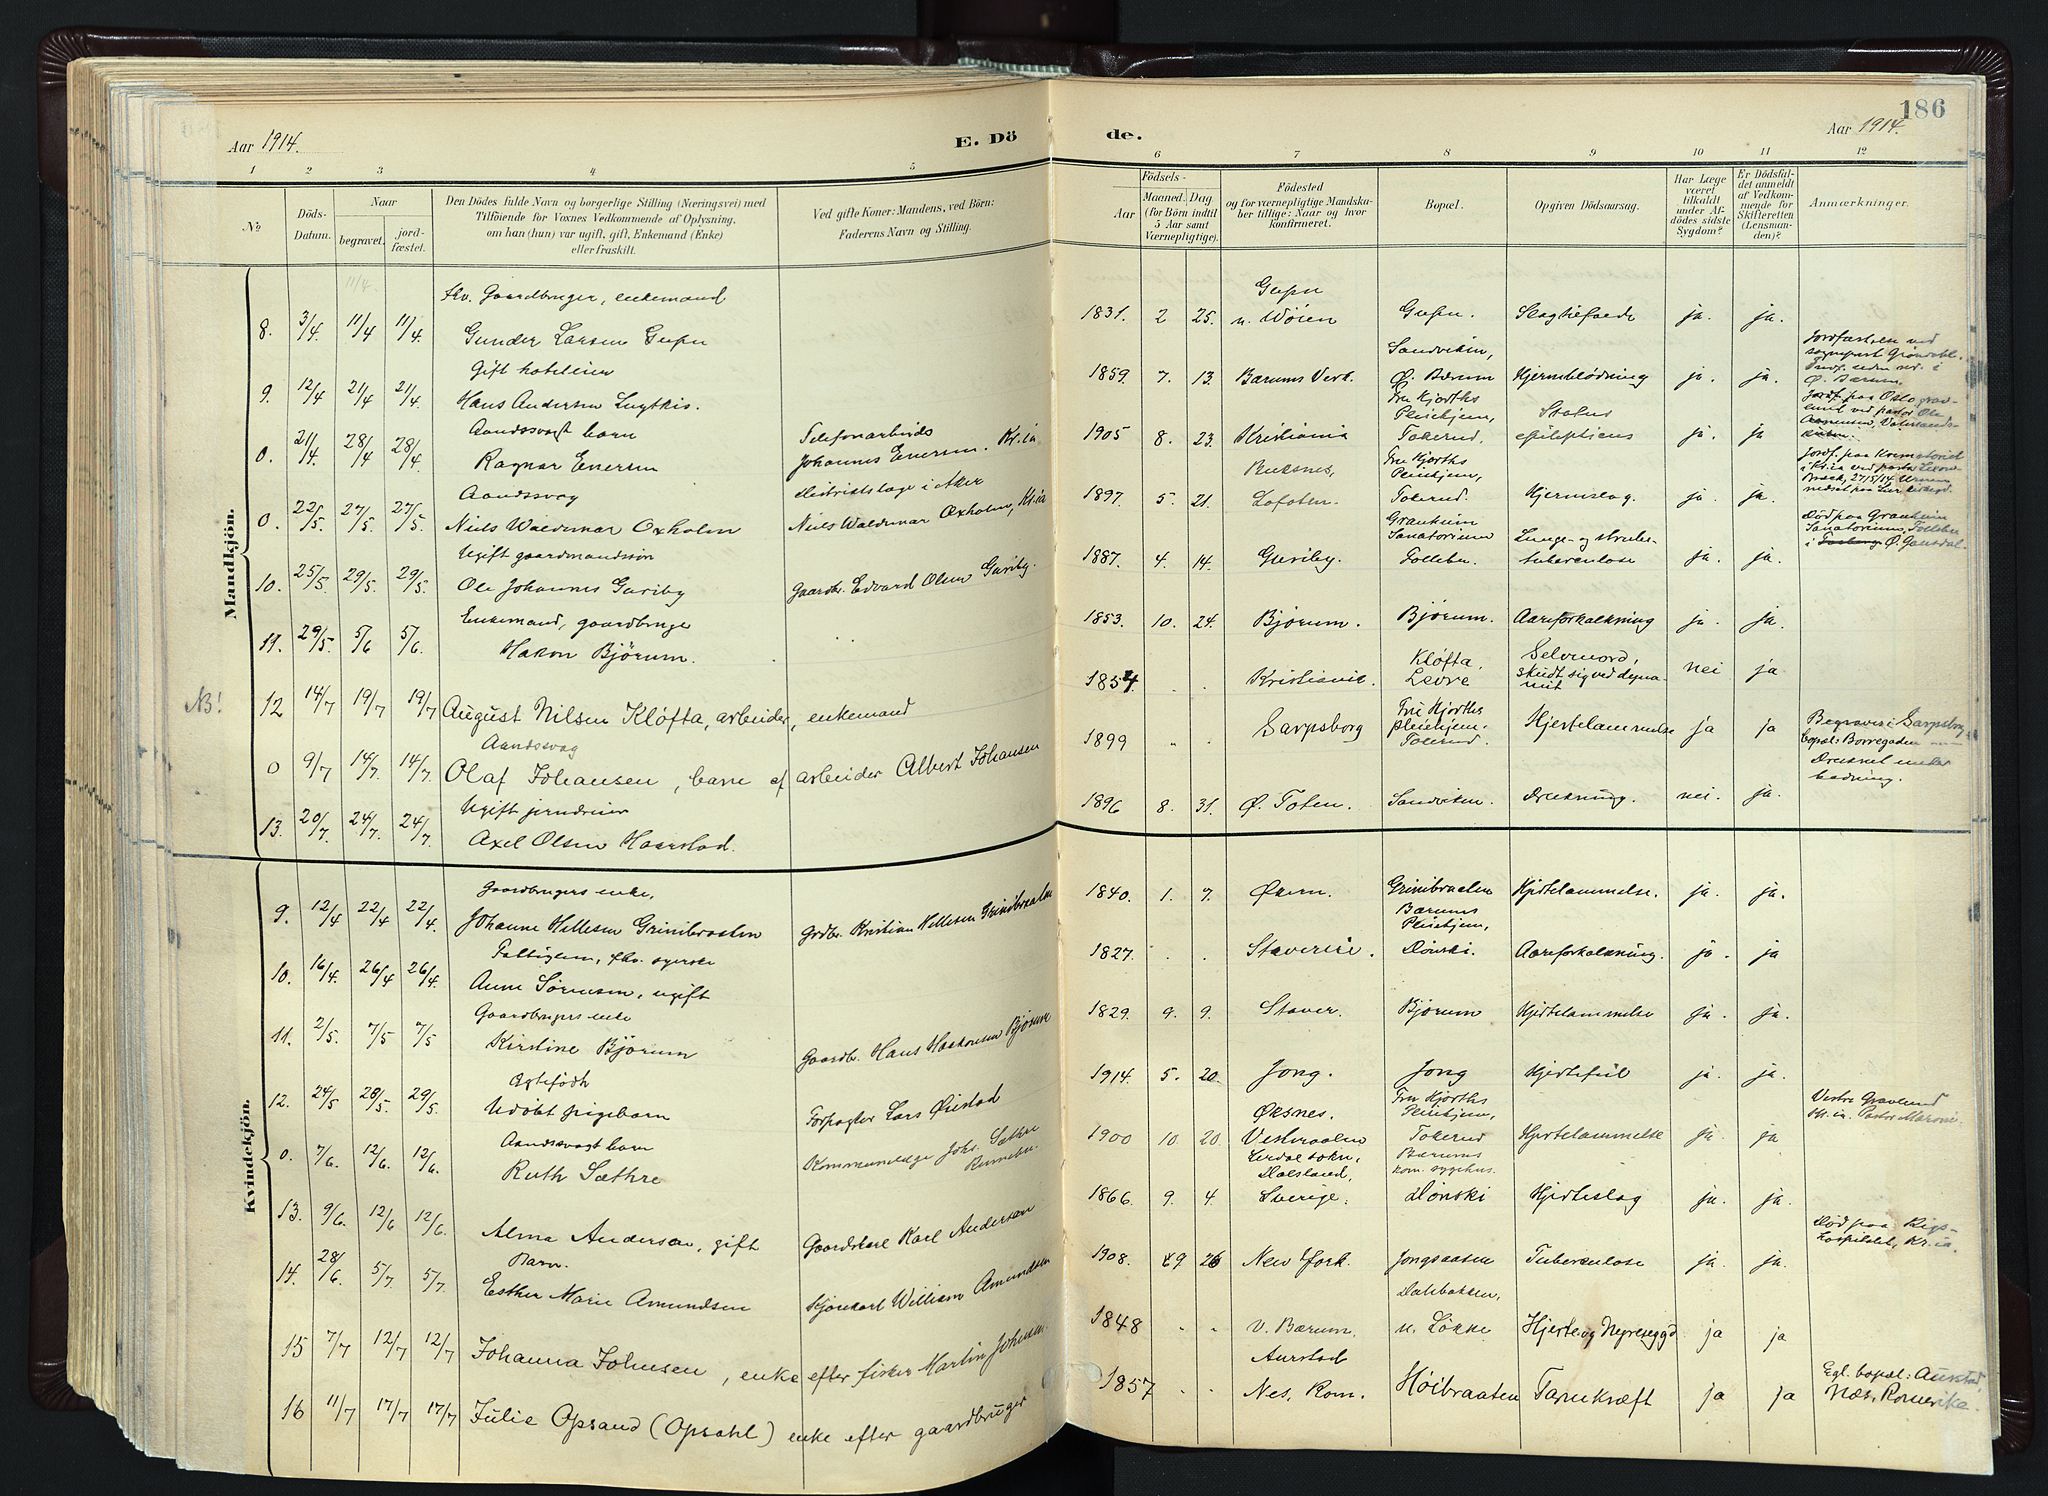 186
Aar 1914.
E. Dö
de.
Aar 1914.
1 2 3 4 5 6 7 8 9 10 11 12
№
Döds-Datum.
Naar
begravet.
jord-fæstet.
Den Dödes fulde Navn og borgerlige Stilling (Næringsvei) med
Tilföiende for Voxnes Vedkommende af Oplysning,
om han (hun) var ugift, gift, Enkemand (Enke)
eller fraskilt.
Ved gifte Koner: Mandens, ved Börn:
Faderens Navn og Stilling.
Födsels-
Aar
Maaned. Dag
(for Börn indtil
5 Aar samt
Værnepligtige).
Födested
og for værnepligtige Mandsku-
ber tillige: Naar og hvor
konfirmeret.
Bopæl.
Opgiven Dödsaarsag.
Har Læge
været
tilkaldt
under Af-
dödes sidste
Sygdom?
Er Dödsfal-
det anmeldt
af Vedkom-
mende for
Skifteretten
(Lensman-
den)?
Anmærkninger.
Mandkjön.
11/4.
fhv. Gaardbruger, enkemand
8. 3/4. 11/4 11/4. Gunder Larsen
1831. 2 25. n. Wøien ja. ja.
Gift
9. 12/4 21/4 21/4. Hans Andersen
Sandviken,
1859. 7. 13. Bærums Verk. Ø. Bærum Hjerneblødning ja. ja.
Jordfæstelse ved
Ø. Bærum.
Aandssvagt barn
0. 21/4. 28/4 28/4. Ragnar Enersen
Telefonarbeids
Johannes Enersen. Kr.ia
Fru Kjorths
Pleiehjem,
1905 8. 23. Kristiania Tokerud. Status
epilepticus ja. ja
Jordf. paa Oslo grav-
Aandssvag
0. 22/5. 27/5. 27/5. Niels Waldemar Oxholm
Distriktslæge i Aker
Niels Waldemar Oxholm, Kr.ia
Buksnes,
Fru Kjorths
Pleiehjem,
1897. 5. 21. Lofoten. Tokerud. Hjerneslag. ja. ja.
Jordf. paa Krematoriet
i Kr.ia ved pastor
Ugift gaardmandssøn
10. 25/5. 29/5. 29/5. Ole Johannes Guriby
Gaardbr. Edvard Olsen Guriby.
Granheim
Sanatorium
1887. 4. 14. Guriby. Follebu. Lunge- og strube-
tuberculose ja. ja.
Død paa Granheim
Sanatorium, Follebu
i Ø. Gausdal.
Enkemand, gaardbruger
11. 29/5. 5/6 5/6. Hakon Bjørum.
1853. 10. 24. Bjørum. Bjørum. Aareforkalkning ja. ja.
NB!
12 14/7 19/7 19/7 August Nilsen Kløfta, arbeider, enkemand
1854. . . Kristiania. Kløfta,
Levre
Selvmord,
skudt sig ved dyna-
mit nei ja
Aandssvag
0 9/7 14/7. 14/7. Olaf Johansen, barn af arbeider Albert Johansen
1899 . . Sarpsborg
Fru Kjorths
pleiehjem.
Tokerud. Hjertelammelse ja ja
Begravet i Sarpsborg,
bopæl: Borregaden
Druknet under
badning.
Ugift
13. 20/7. 24/7. 24/7. Axel Olsen
1896 8. 31. Ø. Toten. Sandviken. Drukning. nei. ja.
Kvindekjön.
Gaardbrugers enke,
9. 12/4 22/4 22/4. Johanne Hellesen Grinibraaten
Grdbr. Kristian Hellesen Grinibraaten
1840. 1. 7. Grinibraaten Hjertelammelse. ja. ja.
Fattiglem, fhv. syerske
10. 16/4. 26/4 26/4. Anne Sørensen, ugift
Bærums
Pleiehjem,
1827. . . Dønski. Aareforkalkning. ja. ja
Gaardbrugers enke
11. 2/5. 7/5 7/5 Kirstine Bjørum
Gaardb. Hans Haakonsen Bjørum
1829. 9. 9. Staver. Bjørum Hjertelammelse ja. ja.
Ægtefødt
12. 24/5 28/5. 29/5. Udøbt pigebarn
Forpagter Lars Øistad
1914. 5. 20. Jong. Jong Hjertefeil ja. ja.
Aandssvagt barn
0. 7/6. 12/6. 12/6. Ruth Sæthre
Kommunelæge Johs. Sæthre
Øksnes.
Fru Kjorths
Pleiehjem,
1900 10. 20 Vesteraalen Tokerud Hjertelammelse ja. ja
Vestre Gravlund
Kr.ia. Pastor
13. 9/6. 12/6 12/6. Alma Andersen, gift
Gaardskarl Karl Andersen
Dalsland,
Bærums
kom. sygehus.
1866. 9. 4. Sverige. Dønski Hjerteslag ja. ja.
Barn.
14. 28/6. 5/7. 5/7. Esther Marie Amundsen
William Amundsen
1908. 9 26 New York. Jongsaasen Tuberculose ja. ja.
Død paa Rigs-
hospitalet, Kr.ia.
15 7/7 12/7 12/7. Johanna Johnsen, enke efter fisker Martin Johnsen.
1848 . . V. Bærum.
Dalsbakken,
n. Løkke Hjerte og Nyresygd ja ja
16 11/7 17/7 17/7 Julie Opsand (Opsahl) enke efter gaardbruger
Aurstad
1857 . . Nes, Rom. Høibraaten Tarmkræft ja ja
Egl. bopæl: Aurstad,
Næs, Romerike.